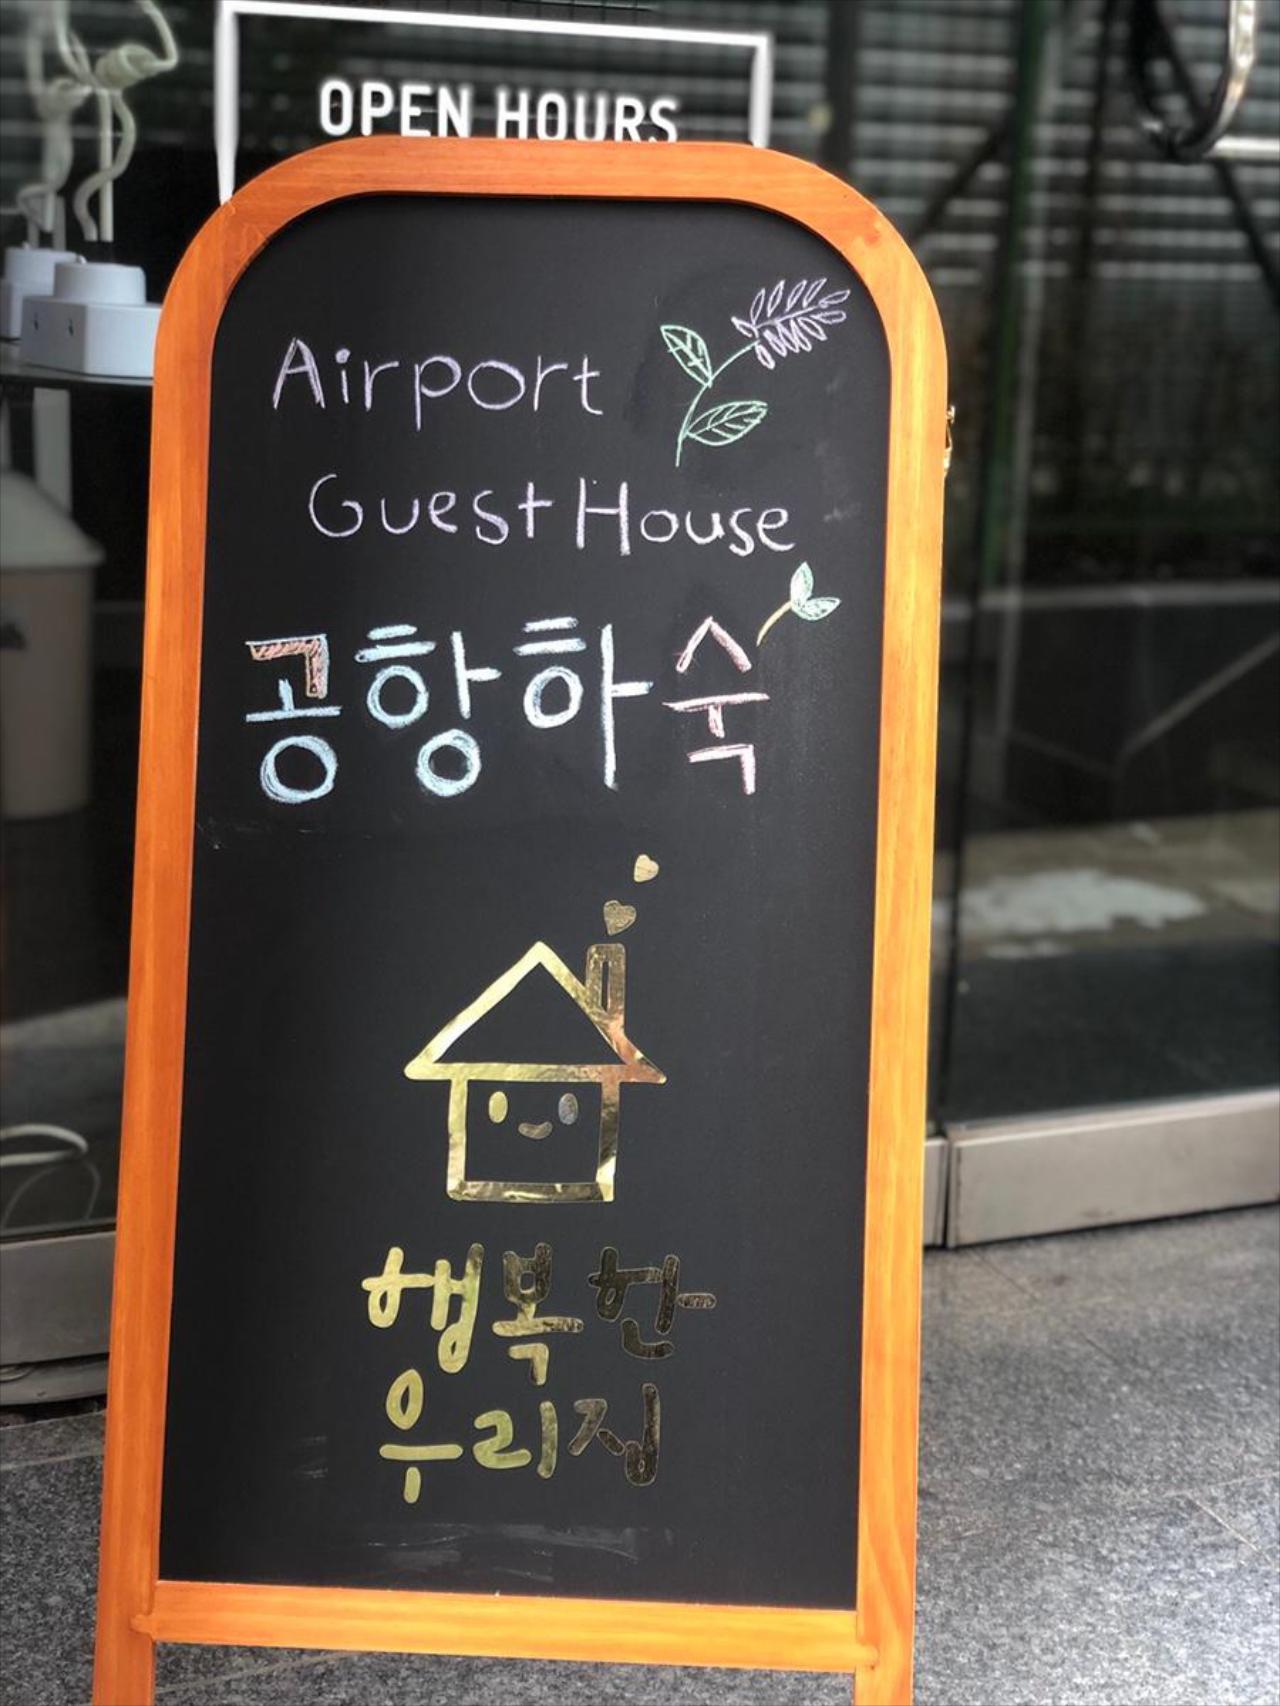 OPEN HOURS
Airport
Guest House
공항하숙
행복한
우리집